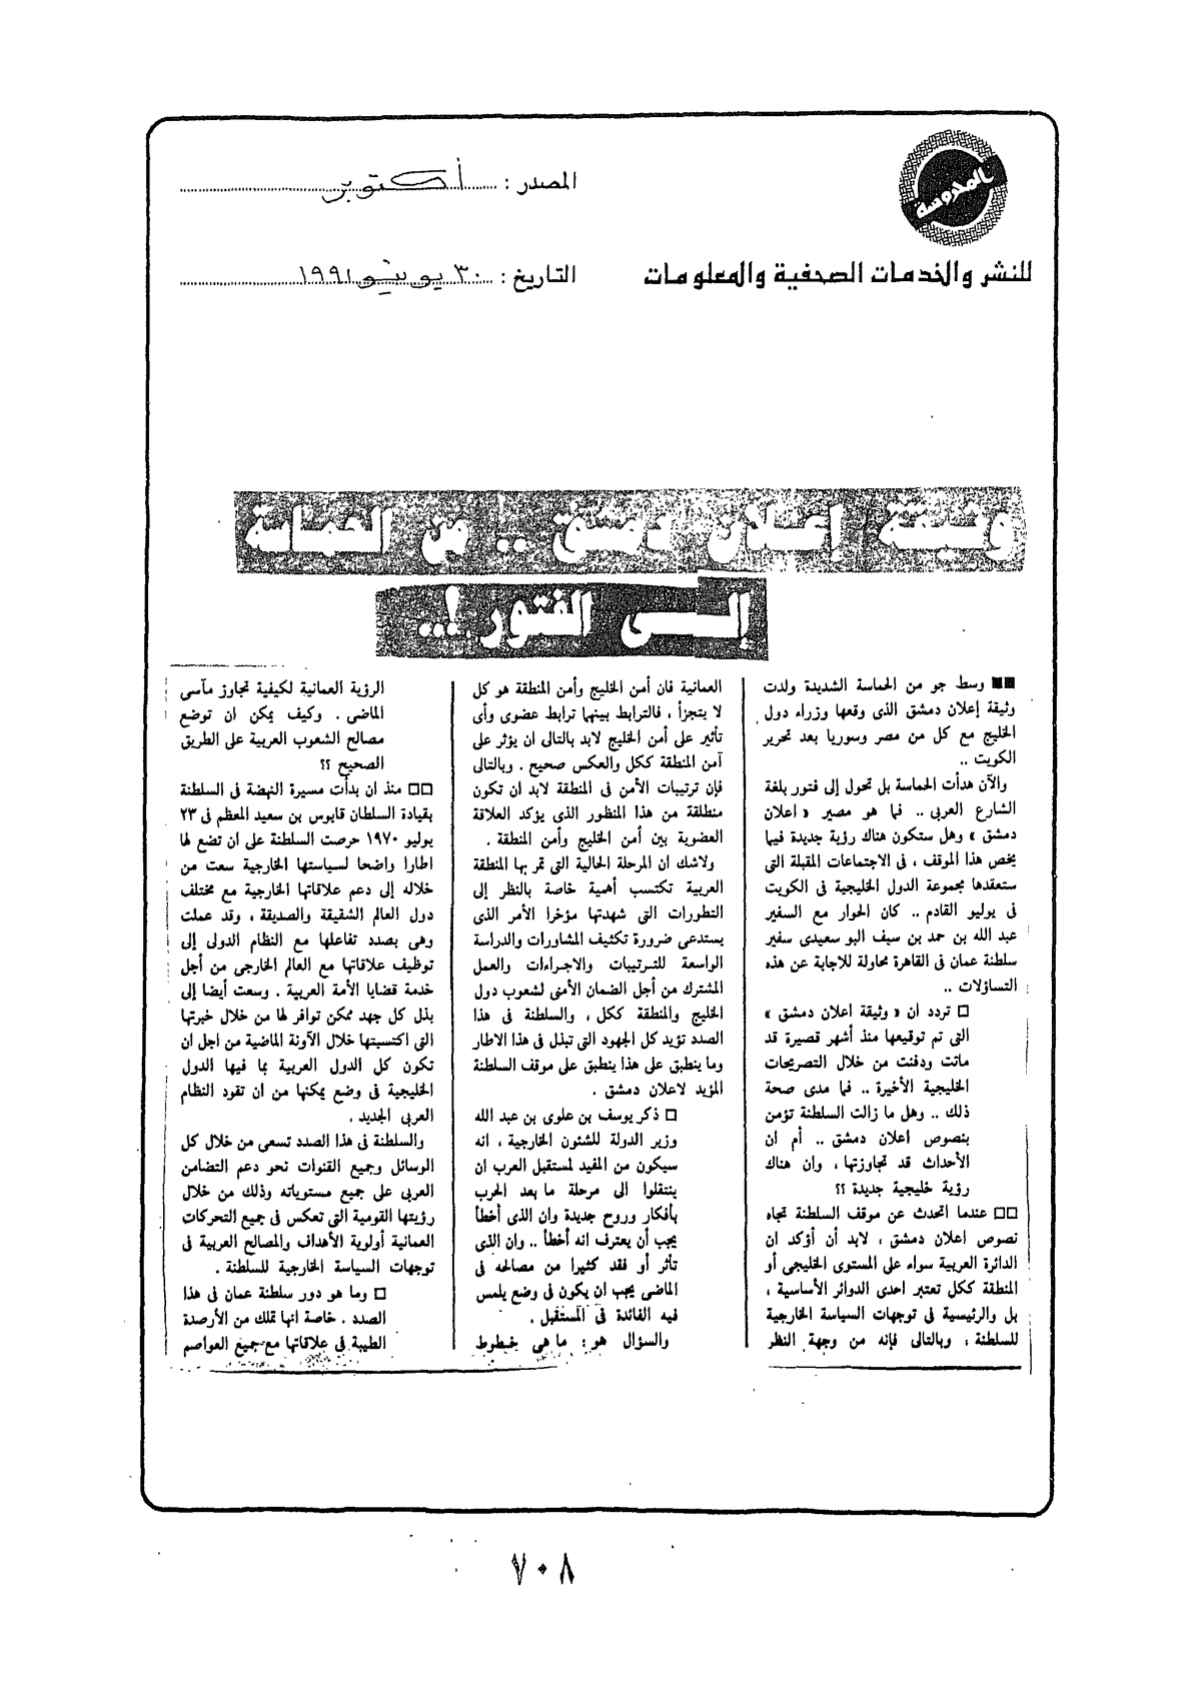 المحروسة
للنشر والخدمات الصحفية والمعلومات
المصدر : أكتوبر
التاريخ : ٣٠ يونيو ١٩٩١
وثيقة إعلان دمشق .. من الحماسة
إلى الفتور !..
■■ وسط جو من الحماسة الشديدة ولدت
وثيقة إعلان دمشق الذى وقعها وزراء دول
الخليج مع كل من مصر وسوريا بعد تحرير
الكويت ..
والآن هدأت الحماسة بل تحول إلى فتور بلغة
الشارع العربى .. فما هو مصير « اعلان
دمشق » وهل ستكون هناك رؤية جديدة فيما
يخص هذا الموقف ، فى الاجتماعات المقبلة التى
ستعقدها مجموعة الدول الخليجية فى الكويت
فى يوليو القادم .. كان الحوار مع السفير
عبد الله بن حمد بن سيف البو سعيدى سفير
سلطنة عمان فى القاهرة محاولة للاجابة عن هذه
التساؤلات ..
□ تردد ان « وثيقة اعلان دمشق »
التى تم توقيعها منذ أشهر قصيرة قد
ماتت ودفنت من خلال التصريحات
الخليجية الأخيرة .. فما مدى صحة
ذلك .. وهل ما زالت السلطنة تؤمن
بنصوص اعلان دمشق .. أم ان
الأحداث قد تجاوزتها ، وان هناك
رؤية خليجية جديدة ؟؟
□□ عندما اتحدث عن موقف السلطنة تجاه
نصوص اعلان دمشق ، لابد أن أؤكد ان
الدائرة العربية سواء على المستوى الخليجى أو
المنطقة ككل تعتبر احدى الدوائر الأساسية ،
بل والرئيسية فى توجهات السياسة الخارجية
للسلطنة ، وبالتالى فإنه من وجهة النظر
العمانية فان أمن الخليج وأمن المنطقة هو كل
لا يتجزأ ، فالترابط بينها ترابط عضوى وأى
تأثير على أمن الخليج لابد بالتالى ان يؤثر على
آمن المنطقة ككل والعكس صحيح . وبالتالى
فإن ترتيبات الأمن فى المنطقة لابد ان تكون
منطلقة من هذا المنظور الذى يؤكد العلاقة
العضوية بين أمن الخليج وأمن المنطقة .
ولاشك ان المرحلة الحالية التى تمر بها المنطقة
العربية تكتسب أهمية خاصة بالنظر إلى
التطورات التى شهدتها مؤخرا الأمر الذى
يستدعى ضرورة تكثيف المشاورات والدراسة
الواسعة للترتيبات والاجراءات والعمل
المشترك من أجل الضمان الأمنى لشعوب دول
الخليج والمنطقة ككل ، والسلطنة فى هذا
الصدد تؤيد كل الجهود التى تبذل فى هذا الاطار
وما ينطبق على هذا ينطبق على موقف السلطنة
المؤيد لاعلان دمشق .
□ ذكر يوسف بن علوى بن عبد الله
وزير الدولة للشئون الخارجية ، انه
سيكون من المفيد لمستقبل العرب ان
ينتقلوا الى مرحلة ما بعد الحرب
بأفكار وروح جديدة وان الذى أخطأ
يجب أن يعترف انه أخطأ .. وان الذى
تأثر أو فقد كثيرا من مصالحه فى
الماضى يجب ان يكون فى وضع يلمس
فيه الفائدة فى المستقبل .
والسؤال هو : ما هى خطوط
الرؤية العمانية لكيفية تجاوز مآسى
الماضى . وكيف يمكن ان توضع
مصالح الشعوب العربية على الطريق
الصحيح ؟؟
□□ منذ ان بدأت مسيرة النهضة فى السلطنة
بقيادة السلطان قابوس بن سعيد المعظم فى ٢٣
يوليو ١٩٧٠ حرصت السلطنة على ان تضع لها
اطارا واضحا لسياستها الخارجية سعت من
خلاله إلى دعم علاقاتها الخارجية مع مختلف
دول العالم الشقيقة والصديقة ، وقد عملت
وهى بصدد تفاعلها مع النظام الدولى إلى
توظيف علاقاتها مع العالم الخارجى من أجل
خدمة قضايا الأمة العربية . وسعت أيضا إلى
بذل كل جهد ممكن توافر لها من خلال خبرتها
التى اكتسبتها خلال الآونة الماضية من اجل ان
تكون كل الدول العربية بما فيها الدول
الخليجية فى وضع يمكنها من ان تقود النظام
العربى الجديد .
والسلطنة فى هذا الصدد تسعى من خلال كل
الوسائل وجميع القنوات نحو دعم التضامن
العربى على جميع مستوياته وذلك من خلال
رؤيتها القومية التى تعكس فى جميع التحركات
العمانية أولوية الأهداف والمصالح العربية فى
توجهات السياسة الخارجية للسلطنة .
□ وما هو دور سلطنة عمان فى هذا
الصدد . خاصة انها تملك من الأرصدة
الطيبة فى علاقاتها مع جميع العواصم
٧٠٨